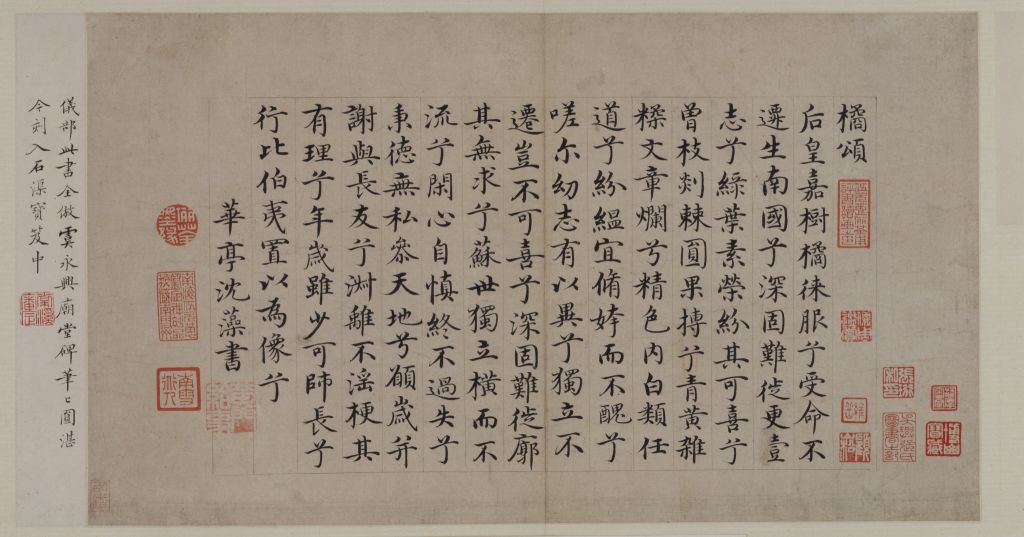 橘頌
后皇嘉樹橘徠服兮受命不
遷生南國兮深固難徙更壹
志兮綠葉素榮紛其可喜兮
曾枝剡棘圓果摶兮青黃雜
糅文章爛兮精色內白類任
道兮紛緼宜脩姱而不醜兮
嗟尔幼志有以異兮獨立不
遷豈不可喜兮深固難徙廓
其無求兮蘇世獨立橫而不
流兮閑心自慎終不過失兮
秉德無私參天地兮願歲并
謝與長友兮淑離不淫梗其
有理兮年歲雖少可師長兮
行比伯夷置以為像兮
華亭沈藻書
儀部此書全倣虞永興廟堂碑筆〻圓湛
今刻入石渠寶笈中